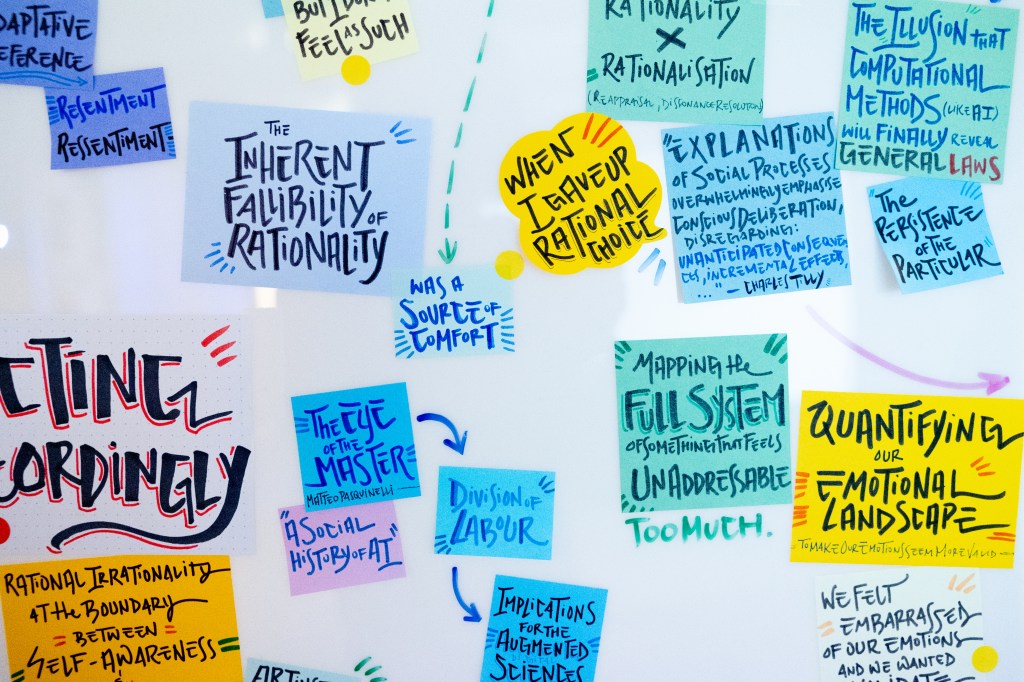 BUT I DON'T
FEEL AS SUCH
RATIONALITY
×
RATIONALISATION
(REAPPRAISAL, DISSONANCE RESOLUTION)
THE ILLUSION THAT
COMPUTATIONAL
METHODS (LIKE AI)
WILL FINALLY REVEAL
GENERAL LAWS
RESENTMENT
RESSENTIMENT
THE
INHERENT
FALLIBILITY OF
RATIONALITY
WHEN
I GAVE UP
RATIONAL
CHOICE
"EXPLANATIONS
OF SOCIAL PROCESSES
OVERWHELMINGLY EMPHASISE
CONSCIOUS DELIBERATION,
DISREGARDING:
UNANTICIPATED CONSEQUEN
CES, INCREMENTAL EFFECTS,
..." — CHARLES TILLY
"THE
PERSISTENCE
OF THE
PARTICULAR"
WAS A
SOURCE OF
COMFORT
CTING
CORDINGLY
THE EYE
OF THE
MASTER
MATTEO PASQUINELLI
"A SOCIAL
HISTORY OF AI"
DIVISION OF
LABOUR
IMPLICATIONS
FOR THE
AUGMENTED
SCIENCES
MAPPING THE
FULL SYSTEM
OF SOMETHING THAT FEELS
UNADDRESSABLE
TOO MUCH.
QUANTIFYING
OUR
EMOTIONAL
LANDSCAPE
TO MAKE OUR EMOTIONS SEEM MORE VALID
RATIONAL IRRATIONALITY
AT THE BOUNDARY
BETWEEN
SELF-AWARENESS
WE FELT
EMBARRASSED
OF OUR EMOTIONS
AND WE WANTED